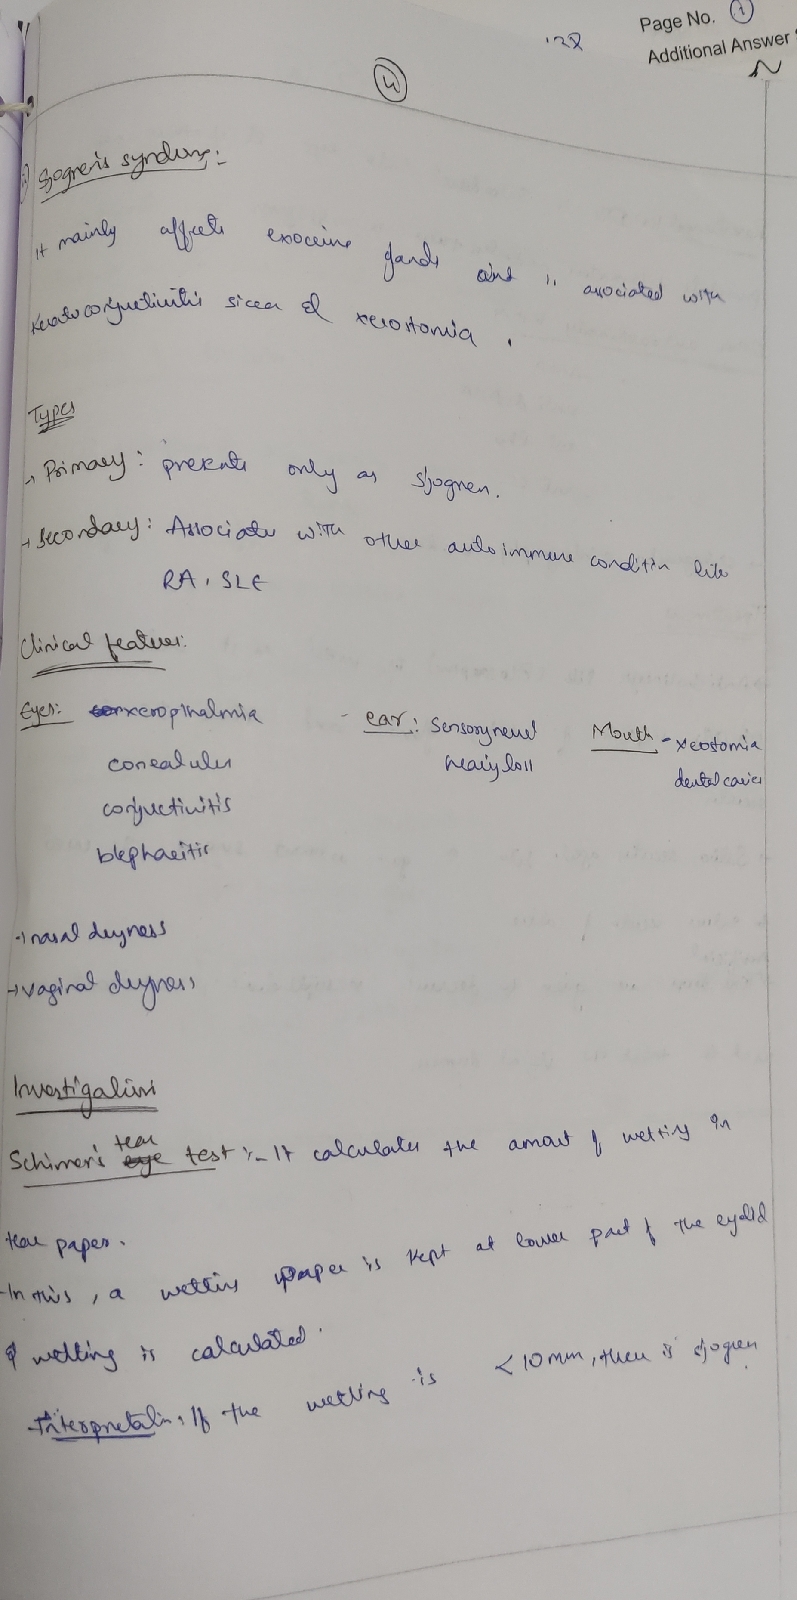 Page No. 1
Additional Answer
138
4
Sjogren's syndrome:
It mainly affects exocrine glands and is associated with
Keratoconjuctivitis sicca & xerostomia.
Types
→ Primary: presents only as Sjogren.
→ Secondary: Associate with other autoimmune condition like
RA, SLE
Clinical features:
Eyes: xeropthalmia
corneal ulcer
conjuctivitis
blephaeitis
- ear: Sensoryneural
hearing loss
Mouth - xerostomia
dental caries
→ nasal dryness
→ vaginal dryness
Investigations
Schirmer's eye tear test :- It calculates the amout of wetting in
tear paper.
- In this, a wetting paper is kept at lower part of the eyelid
& wetting is calculated.
- Interpretation: If the wetting is < 10mm, then is sjogren